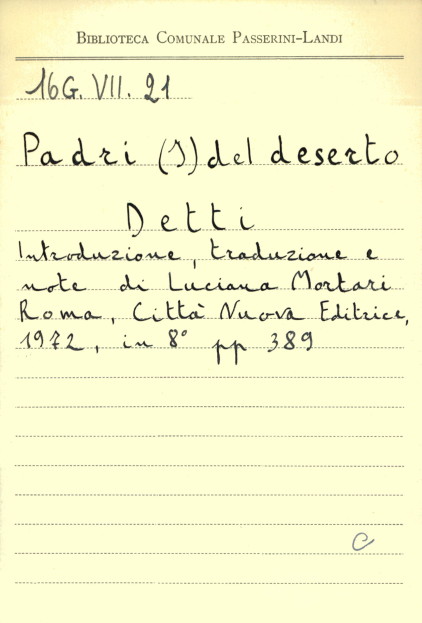 BIBLIOTECA COMUNALE PASSERINI-LANDI
16G. VII. 21
Padri (I) del deserto
Detti
Introduzione, traduzione e
note di Luciana Mortari
Roma, Città Nuova Editrice,
1972, in 8° pp 389
C